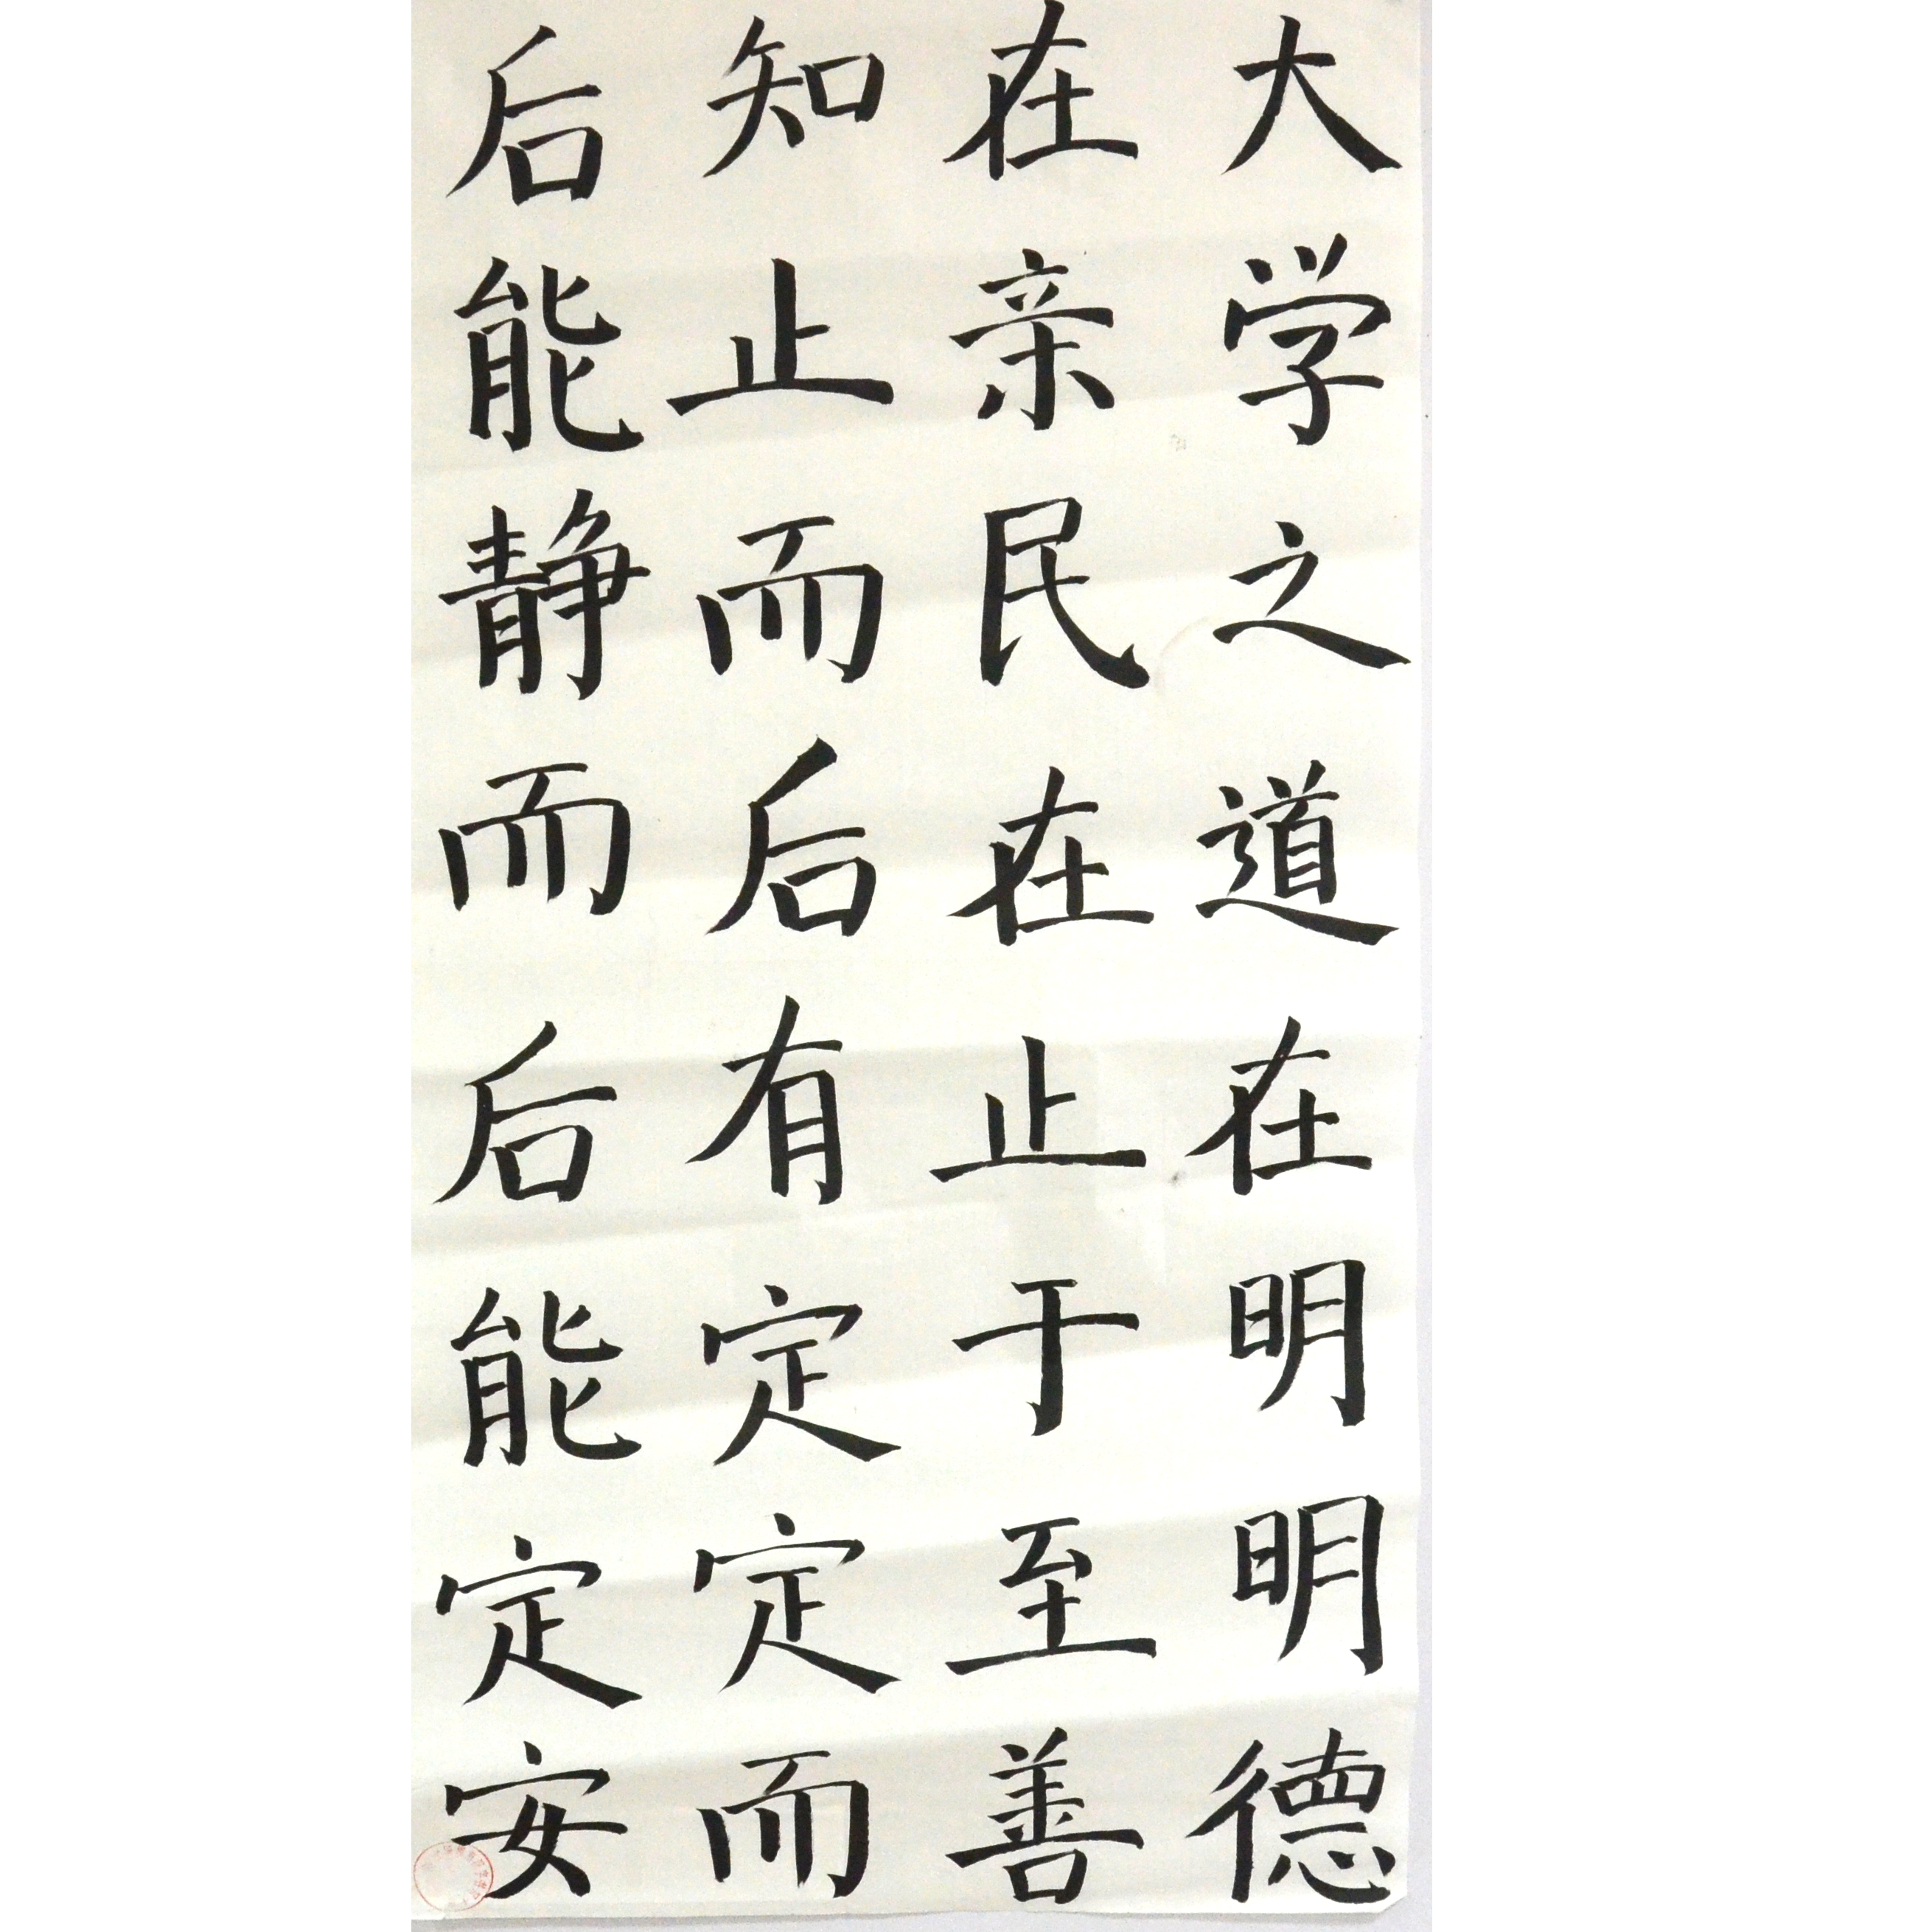 大学之道在明明德
在亲民在止于至善
知止而后有定定而
后能静而后能定安